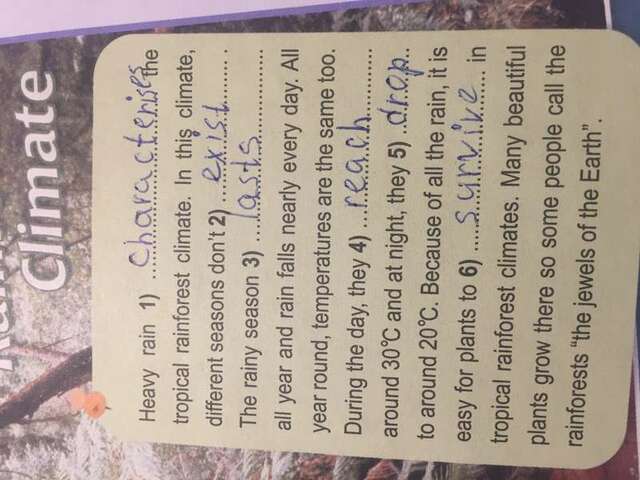 Climate
Heavy rain 1) ...characterises the
tropical rainforest climate. In this climate,
different seasons don't 2) ...exist....... .
The rainy season 3) ....lasts...............
all year and rain falls nearly every day. All
year round, temperatures are the same too.
During the day, they 4) ...reach............
around 30°C and at night, they 5) ..drop..
to around 20°C. Because of all the rain, it is
easy for plants to 6) .....survive... in
tropical rainforest climates. Many beautiful
plants grow there so some people call the
rainforests "the jewels of the Earth".